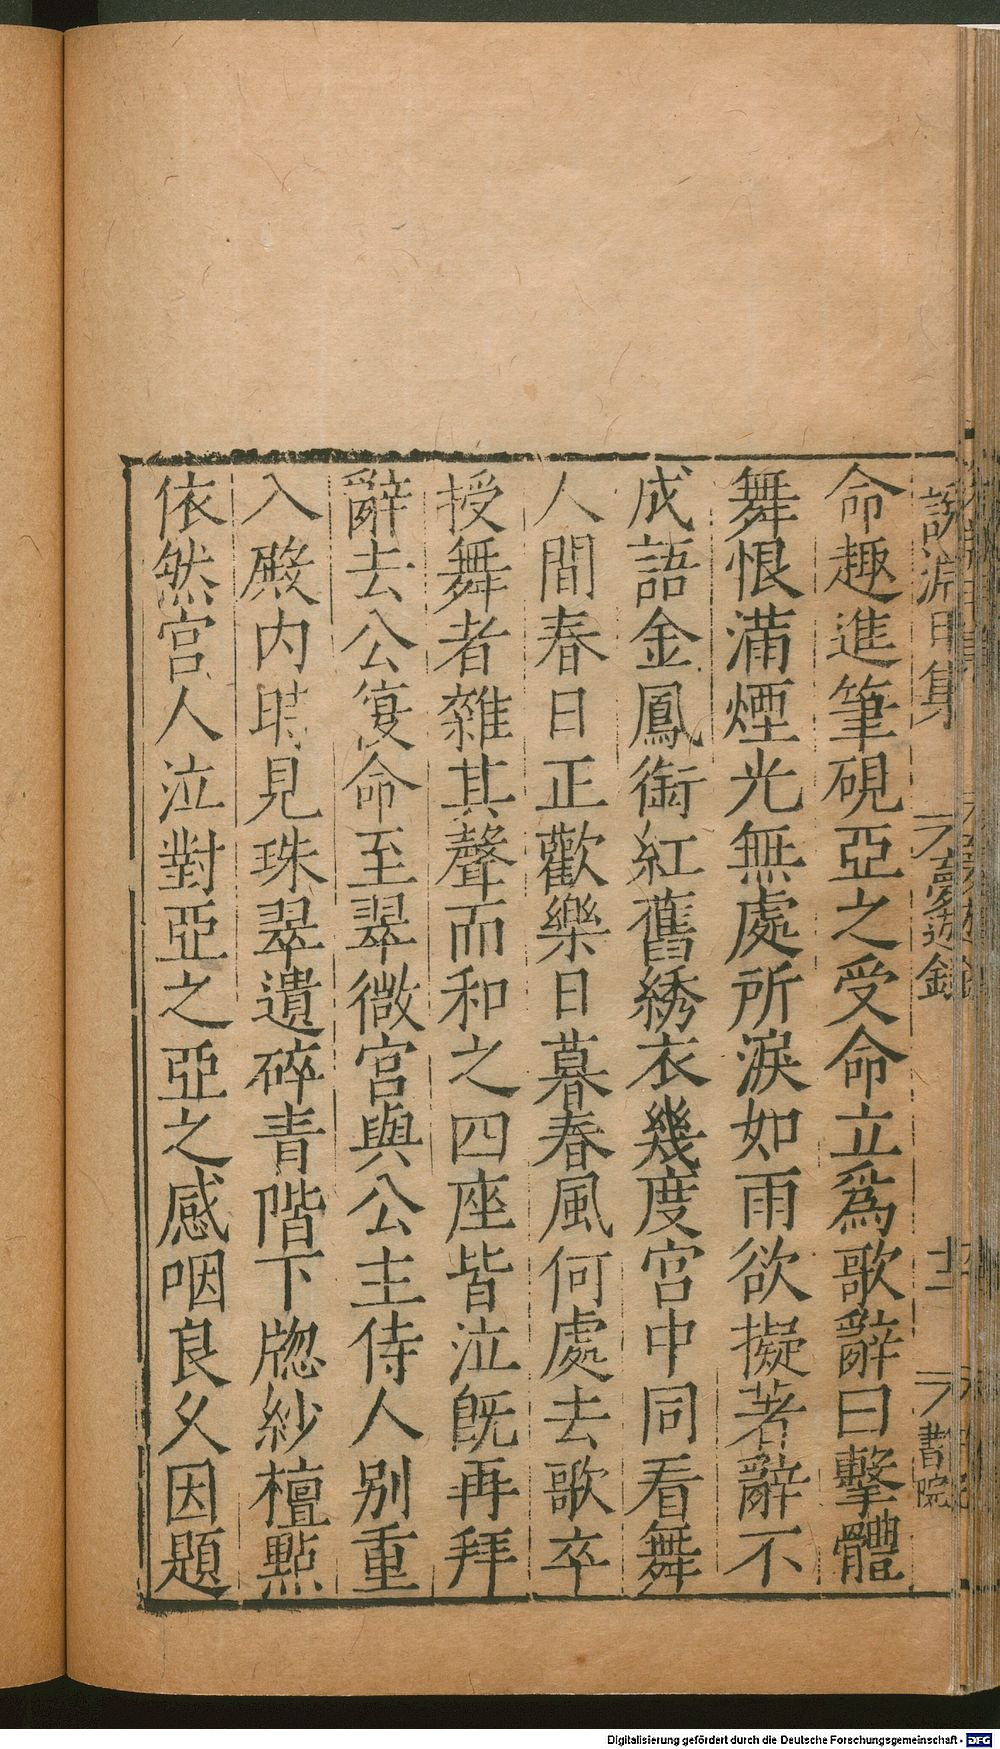 命趣進筆硯亞之受命立爲歌辭曰擊體
舞恨滿煙光無處所淚如雨欲擬著辭不
成語金鳳銜紅舊綉衣幾度宮中同看舞
人間春日正歡樂日暮春風何處去歌卒
授舞者雜其聲而和之四座皆泣旣再拜
辭去公宴命至翠微宮與公主侍人別重
入殿內時見珠翠遺碎青階下牕紗檀點
依然宮人泣對亞之亞之感咽良久因題
說淵 集
夢遊錄
十二
書院
Digitalisierung gefördert durch die Deutsche Forschungsgemeinschaft - DFG